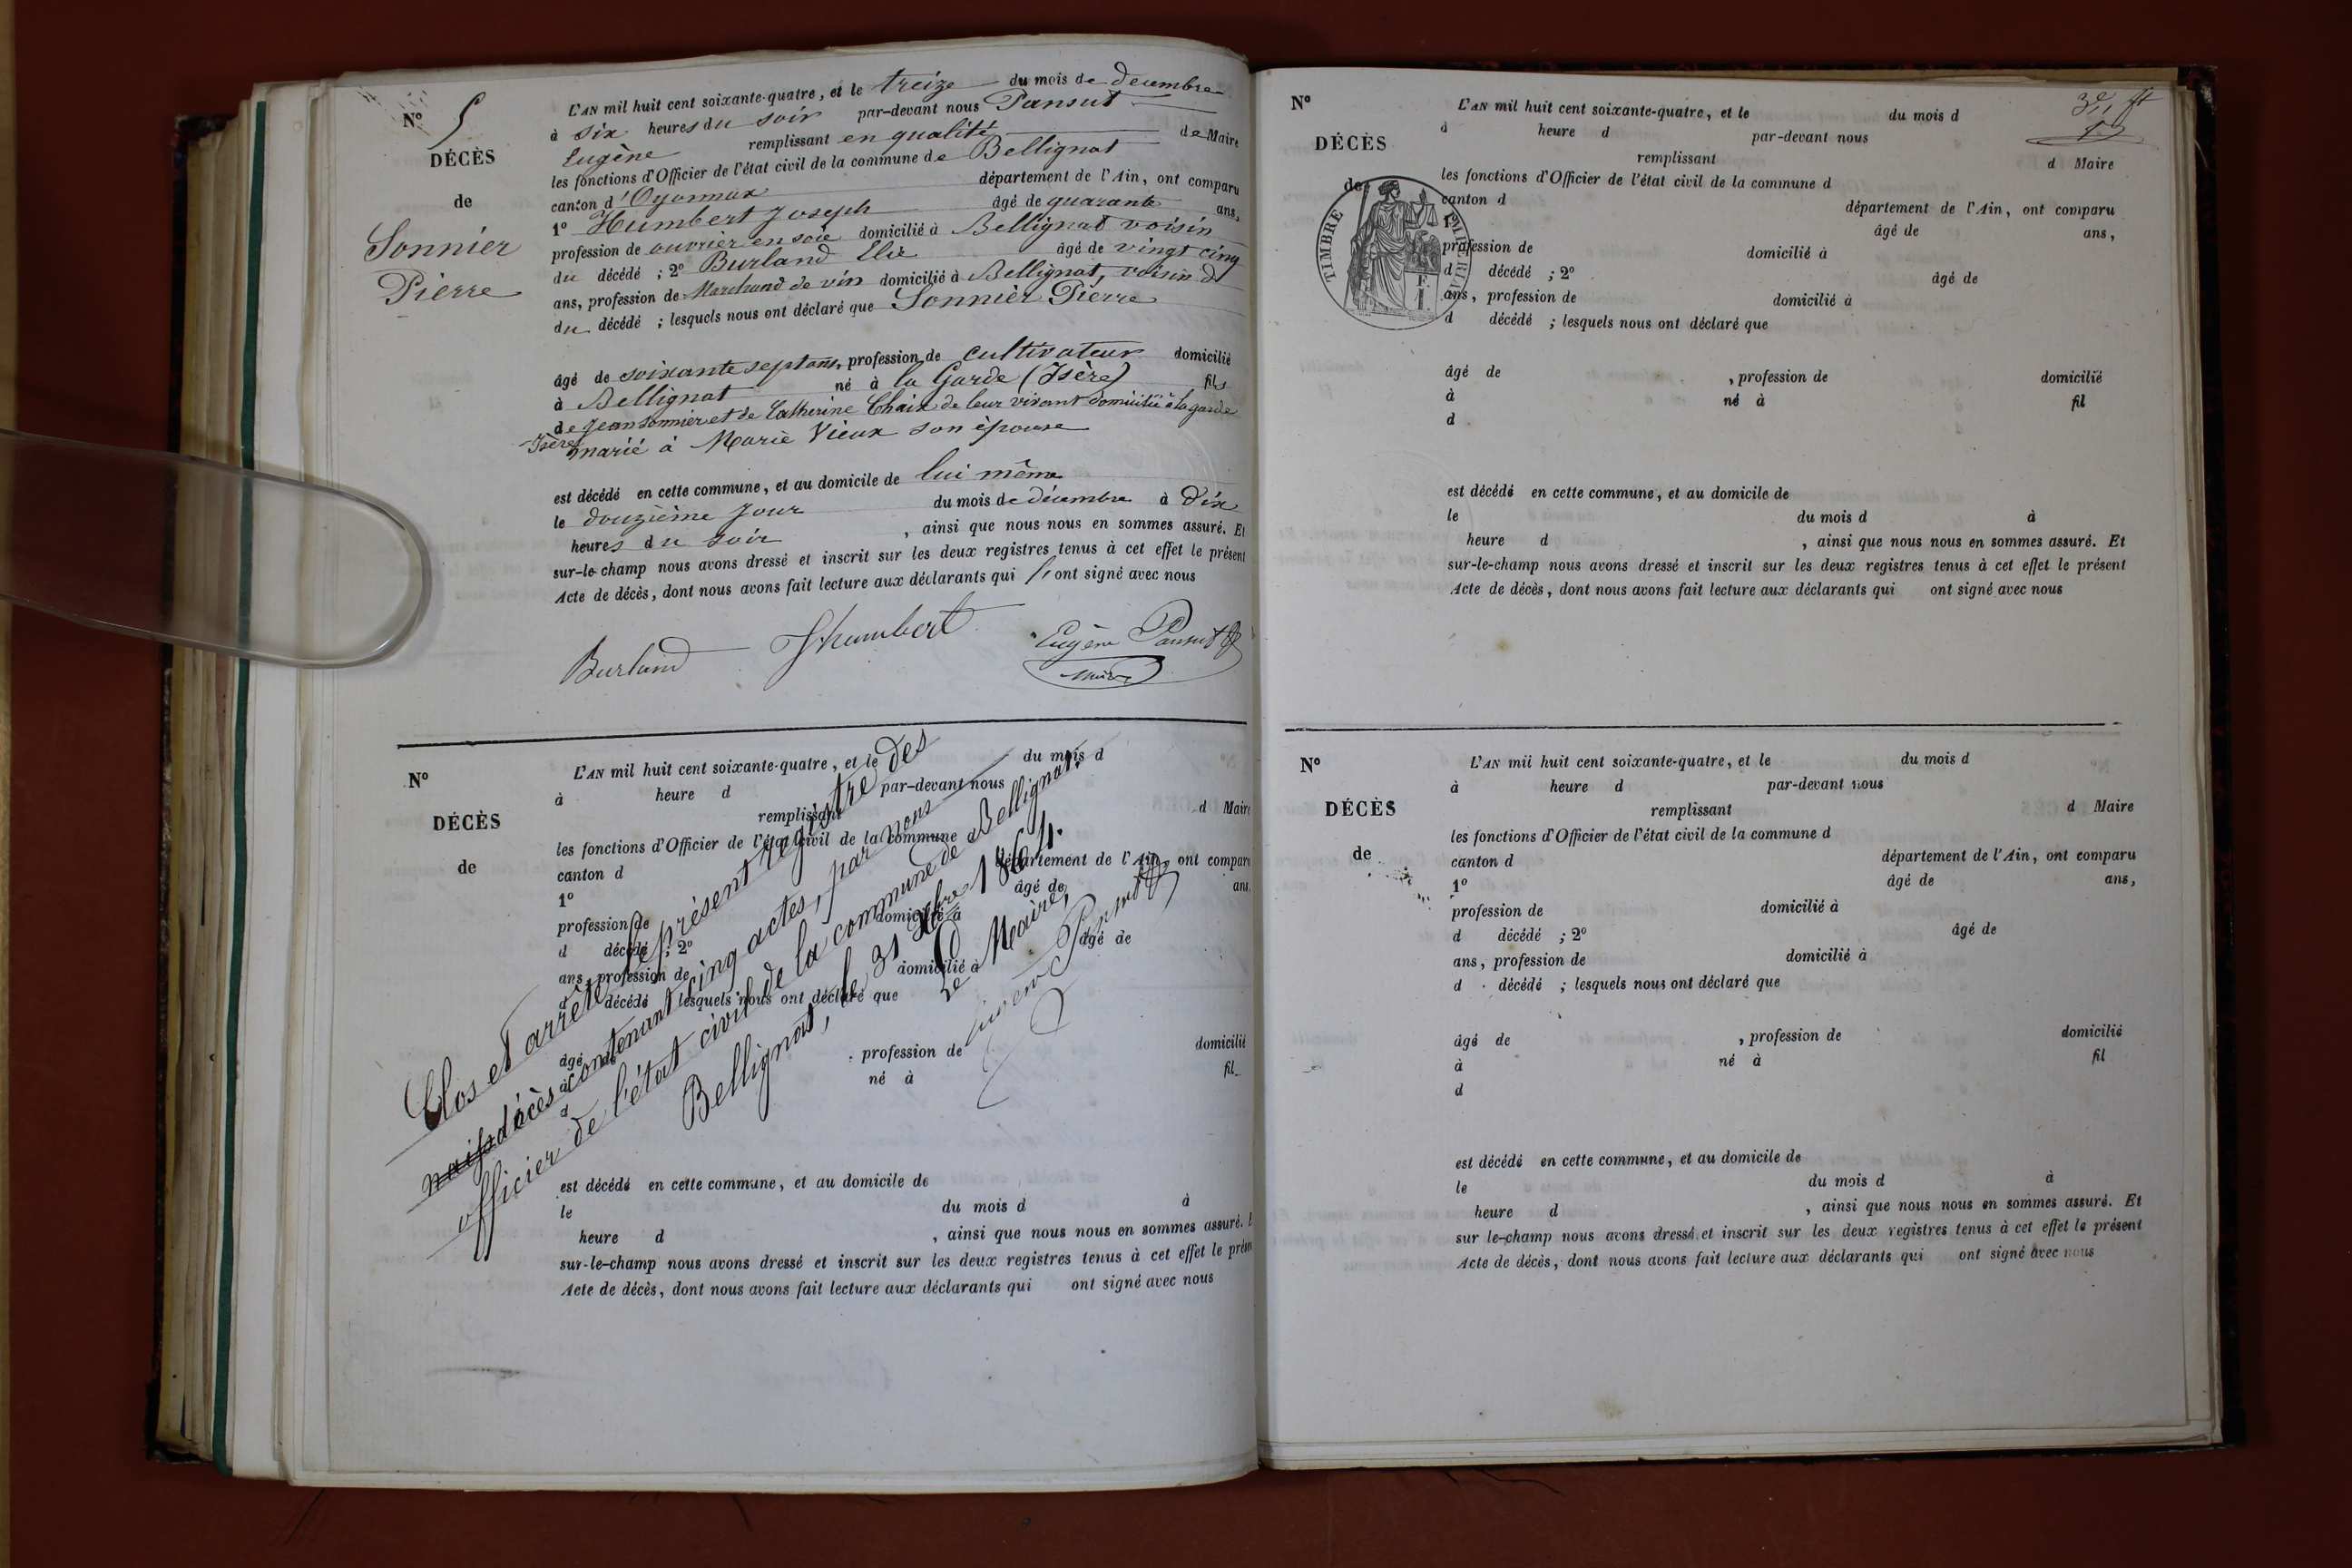 N° 5
DÉCÈS
de
Sonnier
Pierre
L'AN mil huit cent soixante-quatre, et le treize du mois de decembre
à six heures du soir par-devant nous Pansut
Eugène remplissant en qualité de Maire
les fonctions d'Officier de l'état civil de la commune de Bellignat
canton d'Oyonnax département de l'Ain, ont comparu
1° Humbert Joseph âgé de quarante ans,
profession de ouvrier en soie domicilié à Bellignat voisin
du décédé ; 2° Burland Elie âgé de vingt cinq
ans, profession de Marchand de vin domicilié à Bellignat, voisin d
du décédé ; lesquels nous ont déclaré que Sonnièr Pierre
âgé de soixante sept ans, profession de cultivateur domicilié
à Bellignat né à la Garde (Isère) fils
de Jean Sonnier et de Catherine Chaix de leur vivant domicilié à la garde
Isère marié à Marie Vieux son épouse
est décédé en cette commune, et au domicile de lui même
le douzième jour du mois de décembre à dix
heures du soir , ainsi que nous nous en sommes assuré. Et
sur-le-champ nous avons dressé et inscrit sur les deux registres tenus à cet effet le présent
Acte de décès, dont nous avons fait lecture aux déclarants qui ont signé avec nous
Burland Jhumbert Eugène Pansut
Maire
N°
DÉCÈS
de
L'AN mil huit cent soixante-quatre, et le du mois d
à heure d par-devant nous
remplissant d Maire
les fonctions d'Officier de l'état civil de la commune d
canton d département de l'Ain, ont comparu
1° âgé de ans
profession de domicilié à
d décédé ; 2° âgé de
ans, profession de domicilié à
d décédé lesquels nous ont déclaré que
âgé de , profession de domicilié
à né à fil
d
est décédé en cette commune, et au domicile de
le du mois d à
heure d , ainsi que nous nous en sommes assuré. E
sur-le-champ nous avons dressé et inscrit sur les deux registres tenus à cet effet le présen
Acte de décès, dont nous avons fait lecture aux déclarants qui ont signé avec nous
Clos et arrêté le présent registre des
naiss décès contenant cinq actes, par nous
officier de l'état civil de la commune de Bellignat.
Bellignat, le 31 Xbre 1864.
Le Maire,
Eugène Pansut
3e ft
N°
DÉCÈS
de
TIMBRE IMPERIAL
F.
1.
L'AN mil huit cent soixante-quatre, et le du mois d
à heure d par-devant nous
remplissant d Maire
les fonctions d'Officier de l'état civil de la commune d
canton d département de l'Ain, ont comparu
1° âgé de ans,
profession de domicilié à
d décédé ; 2° âgé de
ans, profession de domicilié à
d décédé ; lesquels nous ont déclaré que
âgé de , profession de domicilié
à né à fil
d
est décédé en cette commune, et au domicile de
le du mois d à
heure d , ainsi que nous nous en sommes assuré. Et
sur-le-champ nous avons dressé et inscrit sur les deux registres tenus à cet effet le présent
Acte de décès, dont nous avons fait lecture aux déclarants qui ont signé avec nous
N°
DÉCÈS
de
L'AN mil huit cent soixante-quatre, et le du mois d
à heure d par-devant nous
remplissant d Maire
les fonctions d'Officier de l'état civil de la commune d
canton d département de l'Ain, ont comparu
1° âgé de ans,
profession de domicilié à
d décédé ; 2° âgé de
ans, profession de domicilié à
d décédé ; lesquels nous ont déclaré que
âgé de , profession de domicilié
à né à fil
d
est décédé en cette commune, et au domicile de
le du mois d à
heure d , ainsi que nous nous en sommes assuré. Et
sur le-champ nous avons dressé et inscrit sur les deux registres tenus à cet effet le présent
Acte de décès, dont nous avons fait lecture aux déclarants qui ont signé avec nous